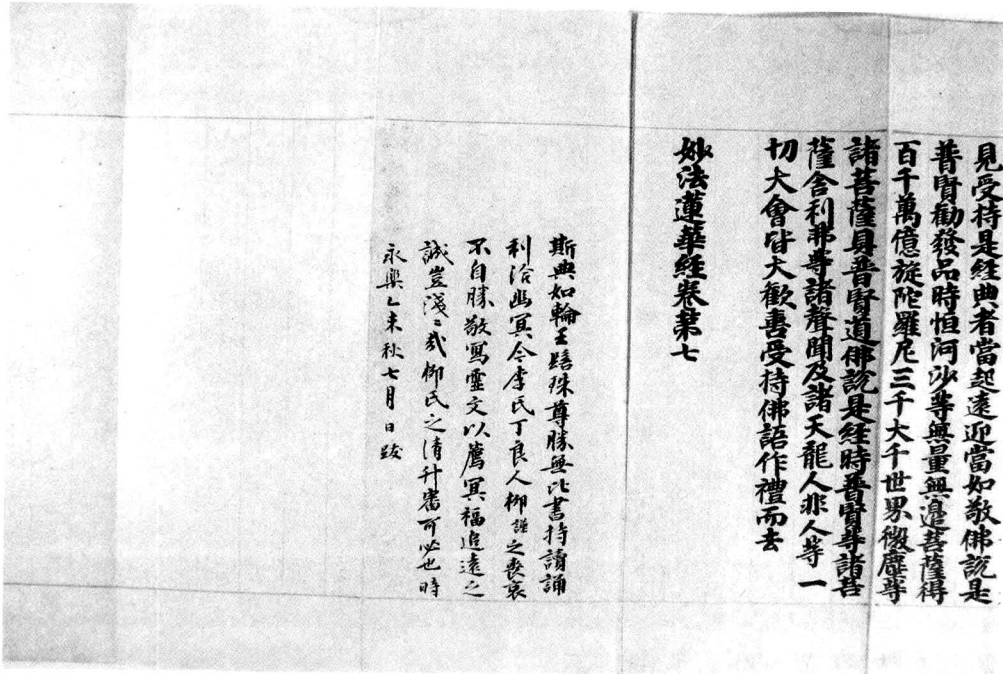 見受持是經典者當起遠迎當如敬佛說是
普賢勸發品時恒河沙等無量無邊菩薩得
百千萬億旋陀羅尼三千大千世界微塵等
諸菩薩具普賢道佛說是經時普賢等諸菩
薩舍利弗等諸聲聞及諸天龍人非人等一
切大會皆大歡喜受持佛語作禮而去
妙法蓮華經卷第七
斯典如輪王髻珠尊勝無比書持讀誦
利洽幽冥令李氏丁良人柳謹之喪哀
不自勝敬寫靈文以薦冥福追遠之
誠豈淺〻哉柳氏之清升審可必也時
永樂乙未秋七月日跋